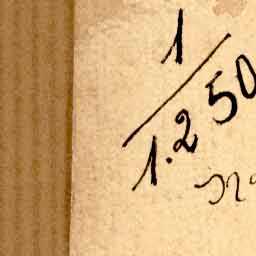 1
1.250